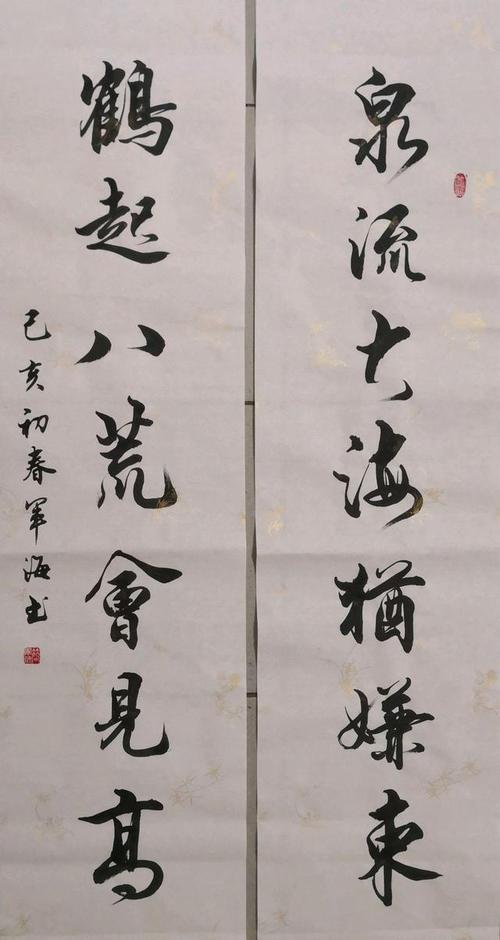 泉流大海猶嫌束
鶴起八荒會見高
己亥初春軍海书